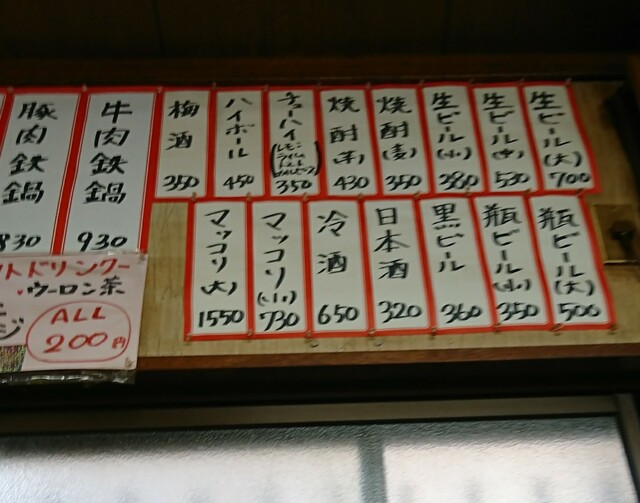 生ビール(大) 700
生ビール(中) 530
生ビール(小) 380
焼酎(麦) 350
焼酎(芋) 430
チューハイ(レモン ライム カルピス) 350
ハイボール 450
梅酒 350
牛肉鉄鍋 930
豚肉鉄鍋 830
瓶ビール(大) 500
瓶ビール(小) 350
黒ビール 360
日本酒 320
冷酒 650
マッコリ(小) 730
マッコリ(大) 1550
トドリンクー
・ウーロン茶
ジ
ALL
200円